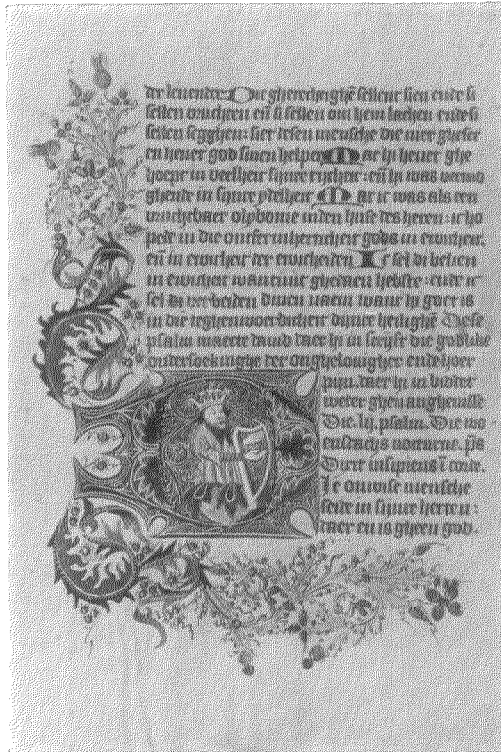 der leuender Die gherechtighe sellent sien ende si
sellen ontsien en si sellen om hem lachen ende si
sellen segghen: siet desen mensche die niet gheset
en heuet god sinen helper Mar hi heuet ghe
hoept in veelheit sijnre rijcheit: en hi was
ghende in sijnre ydelheit Mar ic was als een
vruchtbaer olybome inden huse des heren: ic ho
pede in die ontfermherticheit gods in ewicheit.
en in ewicheit der ewicheiden Ic sel di belien
in ewicheit want du hebste: ende ic
sel verbeiden dinen naem want hi goet is
in die teghenwoerdicheit dijnre heilighe Dese
psalm maecte dauid daer hi in scryft die godlike
ondersoekinghe der ongheloeuigher ende hoer
pijn. daer hi in
weter ghen anghenisse
Die .lij. psalm. Die
nocturne. ps
Dixit insipiens i corde.
Ie onwise mensche
seide in sijnre herten:
daer en is gheen god.